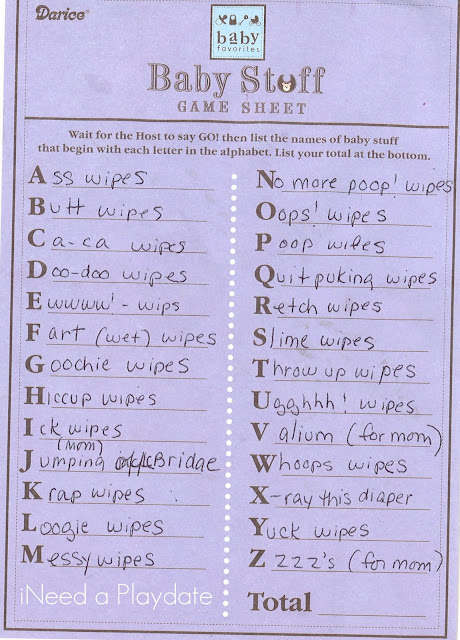 Darice®
baby
favorites
Baby Stuff
GAME SHEET
Wait for the Host to say GO! then list the names of baby stuff
that begin with each letter in the alphabet. List your total at the bottom.
Ass wipes
Butt wipes
Ca-ca wipes
Doo-doo wipes
Ewwww! - wips
Fart (wet) wipes
Goochie wipes
Hiccup wipes
Ick wipes
(mom)
Jumping Bridge
Krap wipes
Loogie wipes
Messy wipes
No more poop! wipes
Oops! wipes
Poop wipes
Quit puking wipes
Retch wipes
Slime wipes
Throw up wipes
Ugghhh! wipes
Valium (for mom)
Whoops wipes
X-ray this diaper
Yuck wipes
Zzzz's (for mom)
Total
iNeed a Playdate